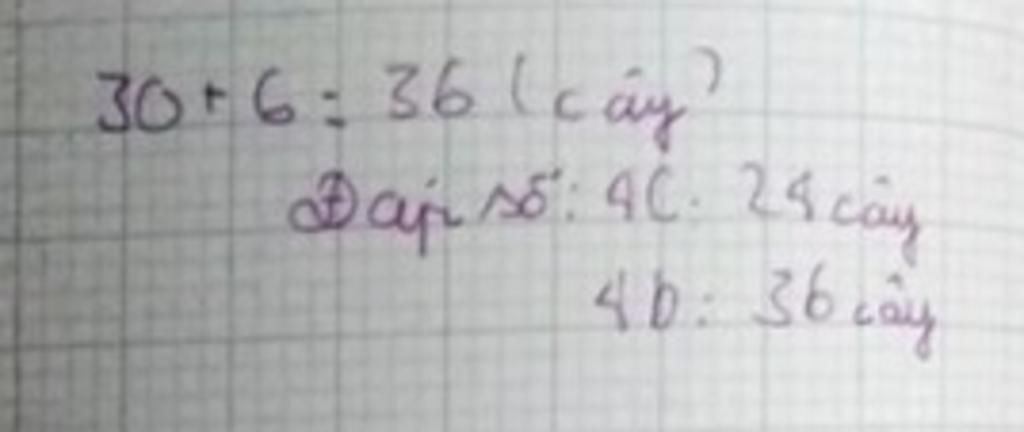 30 + 6 = 36 (cây)
Đáp số: 4C: 24 cây
4b: 36 cây